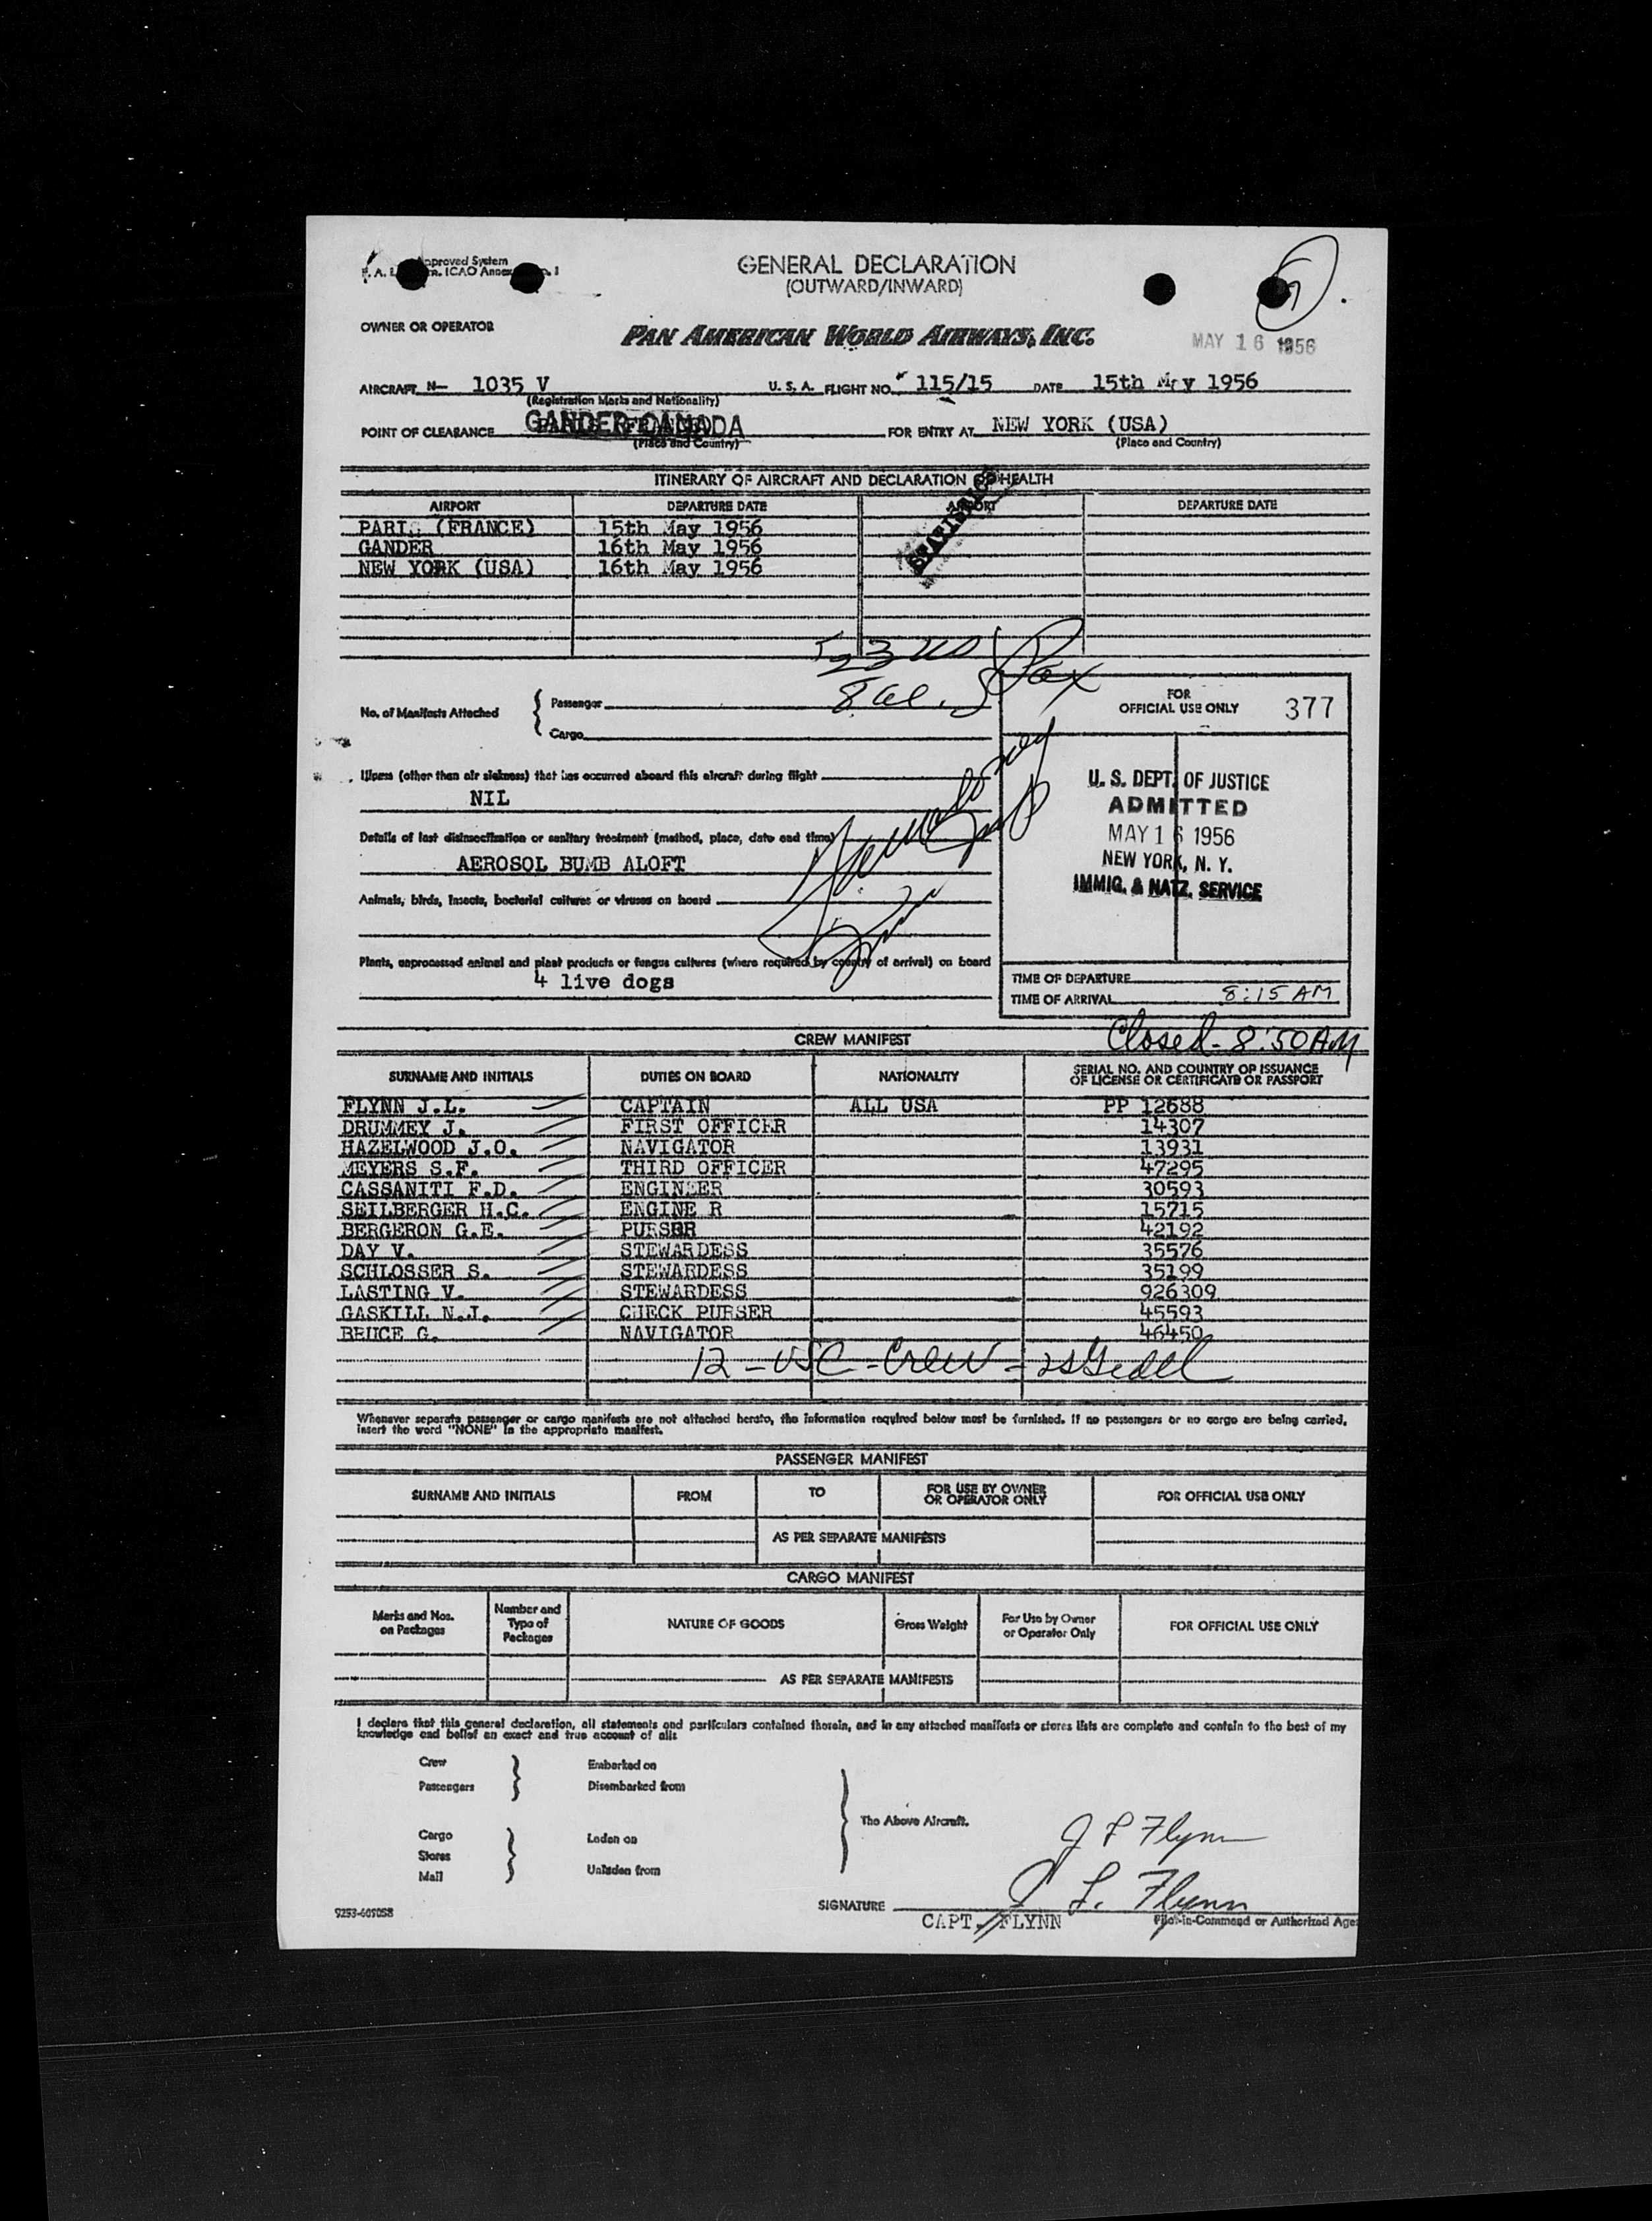 GENERAL DECLARATION
(OUTWARD/INWARD)
OWNER OR OPERATOR
PAN AMERICAN WORLD AIRWAYS, INC.
MAY 16 1956
AIRCRAFT N- 1035 V U. S. A. FLIGHT NO. 115/15 DATE 15th May 1956
(Registration Marks and Nationality)
POINT OF CLEARANCE GANDER CANADA FOR ENTRY AT NEW YORK (USA)
(Place and Country) (Place and Country)
ITINERARY OF AIRCRAFT AND DECLARATION OF HEALTH
AIRPORT DEPARTURE DATE AIRPORT DEPARTURE DATE
STATISTICS
PARIS (FRANCE) 15th May 1956
GANDER 16th May 1956
NEW YORK (USA) 16th May 1956
No. of Manifests Attached { Passenger
Cargo
Pax
FOR
OFFICIAL USE ONLY 377
Illness (other than air sickness) that has occurred aboard this aircraft during flight
NIL
U. S. DEPT. OF JUSTICE
ADMITTED
MAY 16 1956
NEW YORK, N. Y.
IMMIG. & NATZ. SERVICE
Details of last disinsectization or sanitary treatment (method, place, date and time)
AEROSOL BUMB ALOFT
Animals, birds, insects, bacterial cultures or viruses on board
Plants, unprocessed animal and plant products or fungus cultures (where required by country of arrival) on board
4 live dogs
TIME OF DEPARTURE
TIME OF ARRIVAL 8:15 AM
Closed - 8:50 AM
CREW MANIFEST
SURNAME AND INITIALS DUTIES ON BOARD NATIONALITY SERIAL NO. AND COUNTRY OF ISSUANCE
OF LICENSE OR CERTIFICATE OR PASSPORT
FLYNN J.L. CAPTAIN ALL USA PP 12688
DRUMMEY J. FIRST OFFICER 14307
HAZELWOOD J.O. NAVIGATOR 13931
MEYERS S.F. THIRD OFFICER 47295
CASSANITI F.D. ENGINEER 30593
SEILBERGER H.C. ENGINE R 15715
BERGERON G.E. PURSER 42192
DAY V. STEWARDESS 35576
SCHLOSSER S. STEWARDESS 35199
LASTING V. STEWARDESS 926309
GASKILL N.J. CHECK PURSER 45593
BRUCE G. NAVIGATOR 46450
12 - USC - Crew -
Whenever separate passenger or cargo manifests are not attached hereto, the information required below must be furnished. If no passengers or no cargo are being carried,
insert the word "NONE" in the appropriate manifest.
PASSENGER MANIFEST
SURNAME AND INITIALS FROM TO FOR USE BY OWNER
OR OPERATOR ONLY FOR OFFICIAL USE ONLY
AS PER SEPARATE MANIFESTS
CARGO MANIFEST
Marks and Nos.
on Packages Number and
Type of
Packages NATURE OF GOODS Gross Weight For Use by Owner
or Operator Only FOR OFFICIAL USE ONLY
AS PER SEPARATE MANIFESTS
I declare that this general declaration, all statements and particulars contained therein, and in any attached manifests or stores lists are complete and contain to the best of my
knowledge and belief an exact and true account of all:
Crew Embarked on
Passengers Disembarked from
The Above Aircraft.
Cargo Laden on
Stores
Mail Unladen from
J L Flynn
SIGNATURE J L. Flynn
CAPT. FLYNN Pilot-in-Command or Authorized Age
9253-609058